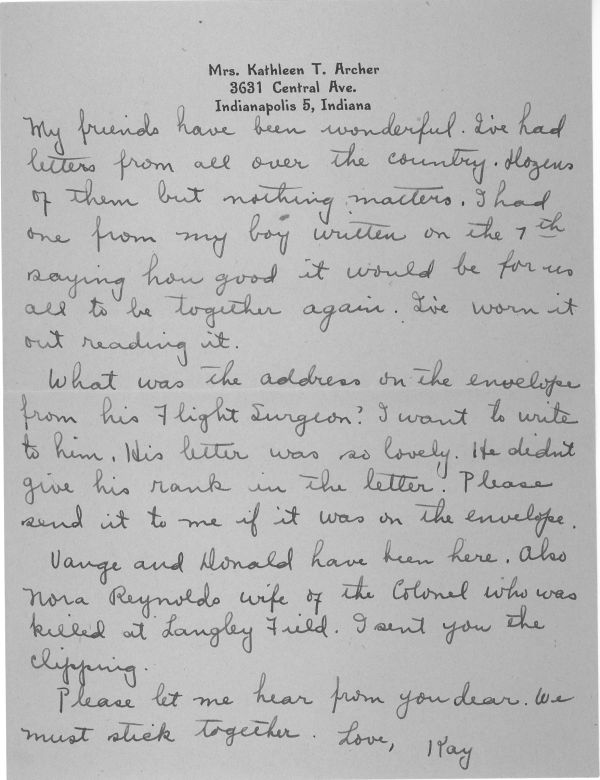 Mrs. Kathleen T. Archer
3631 Central Ave.
Indianapolis 5, Indiana
My friends have been wonderful. I've had
letters from all over the country. Dozens
of them but nothing matters. I had
one from my boy written on the 7th
saying how good it would be for us
all to be together again. I've worn it
out reading it.
What was the address on the envelope
from his Flight Surgeon? I want to write
to him. His letter was so lovely. He didn't
give his rank in the letter. Please
send it to me if it was on the envelope.
Vange and Donald have been here. Also
Nora Reynolds wife of the Colonel who was
killed at Langley Field. I sent you the
clipping.
Please let me hear from you dear. We
must stick together. Love, Kay